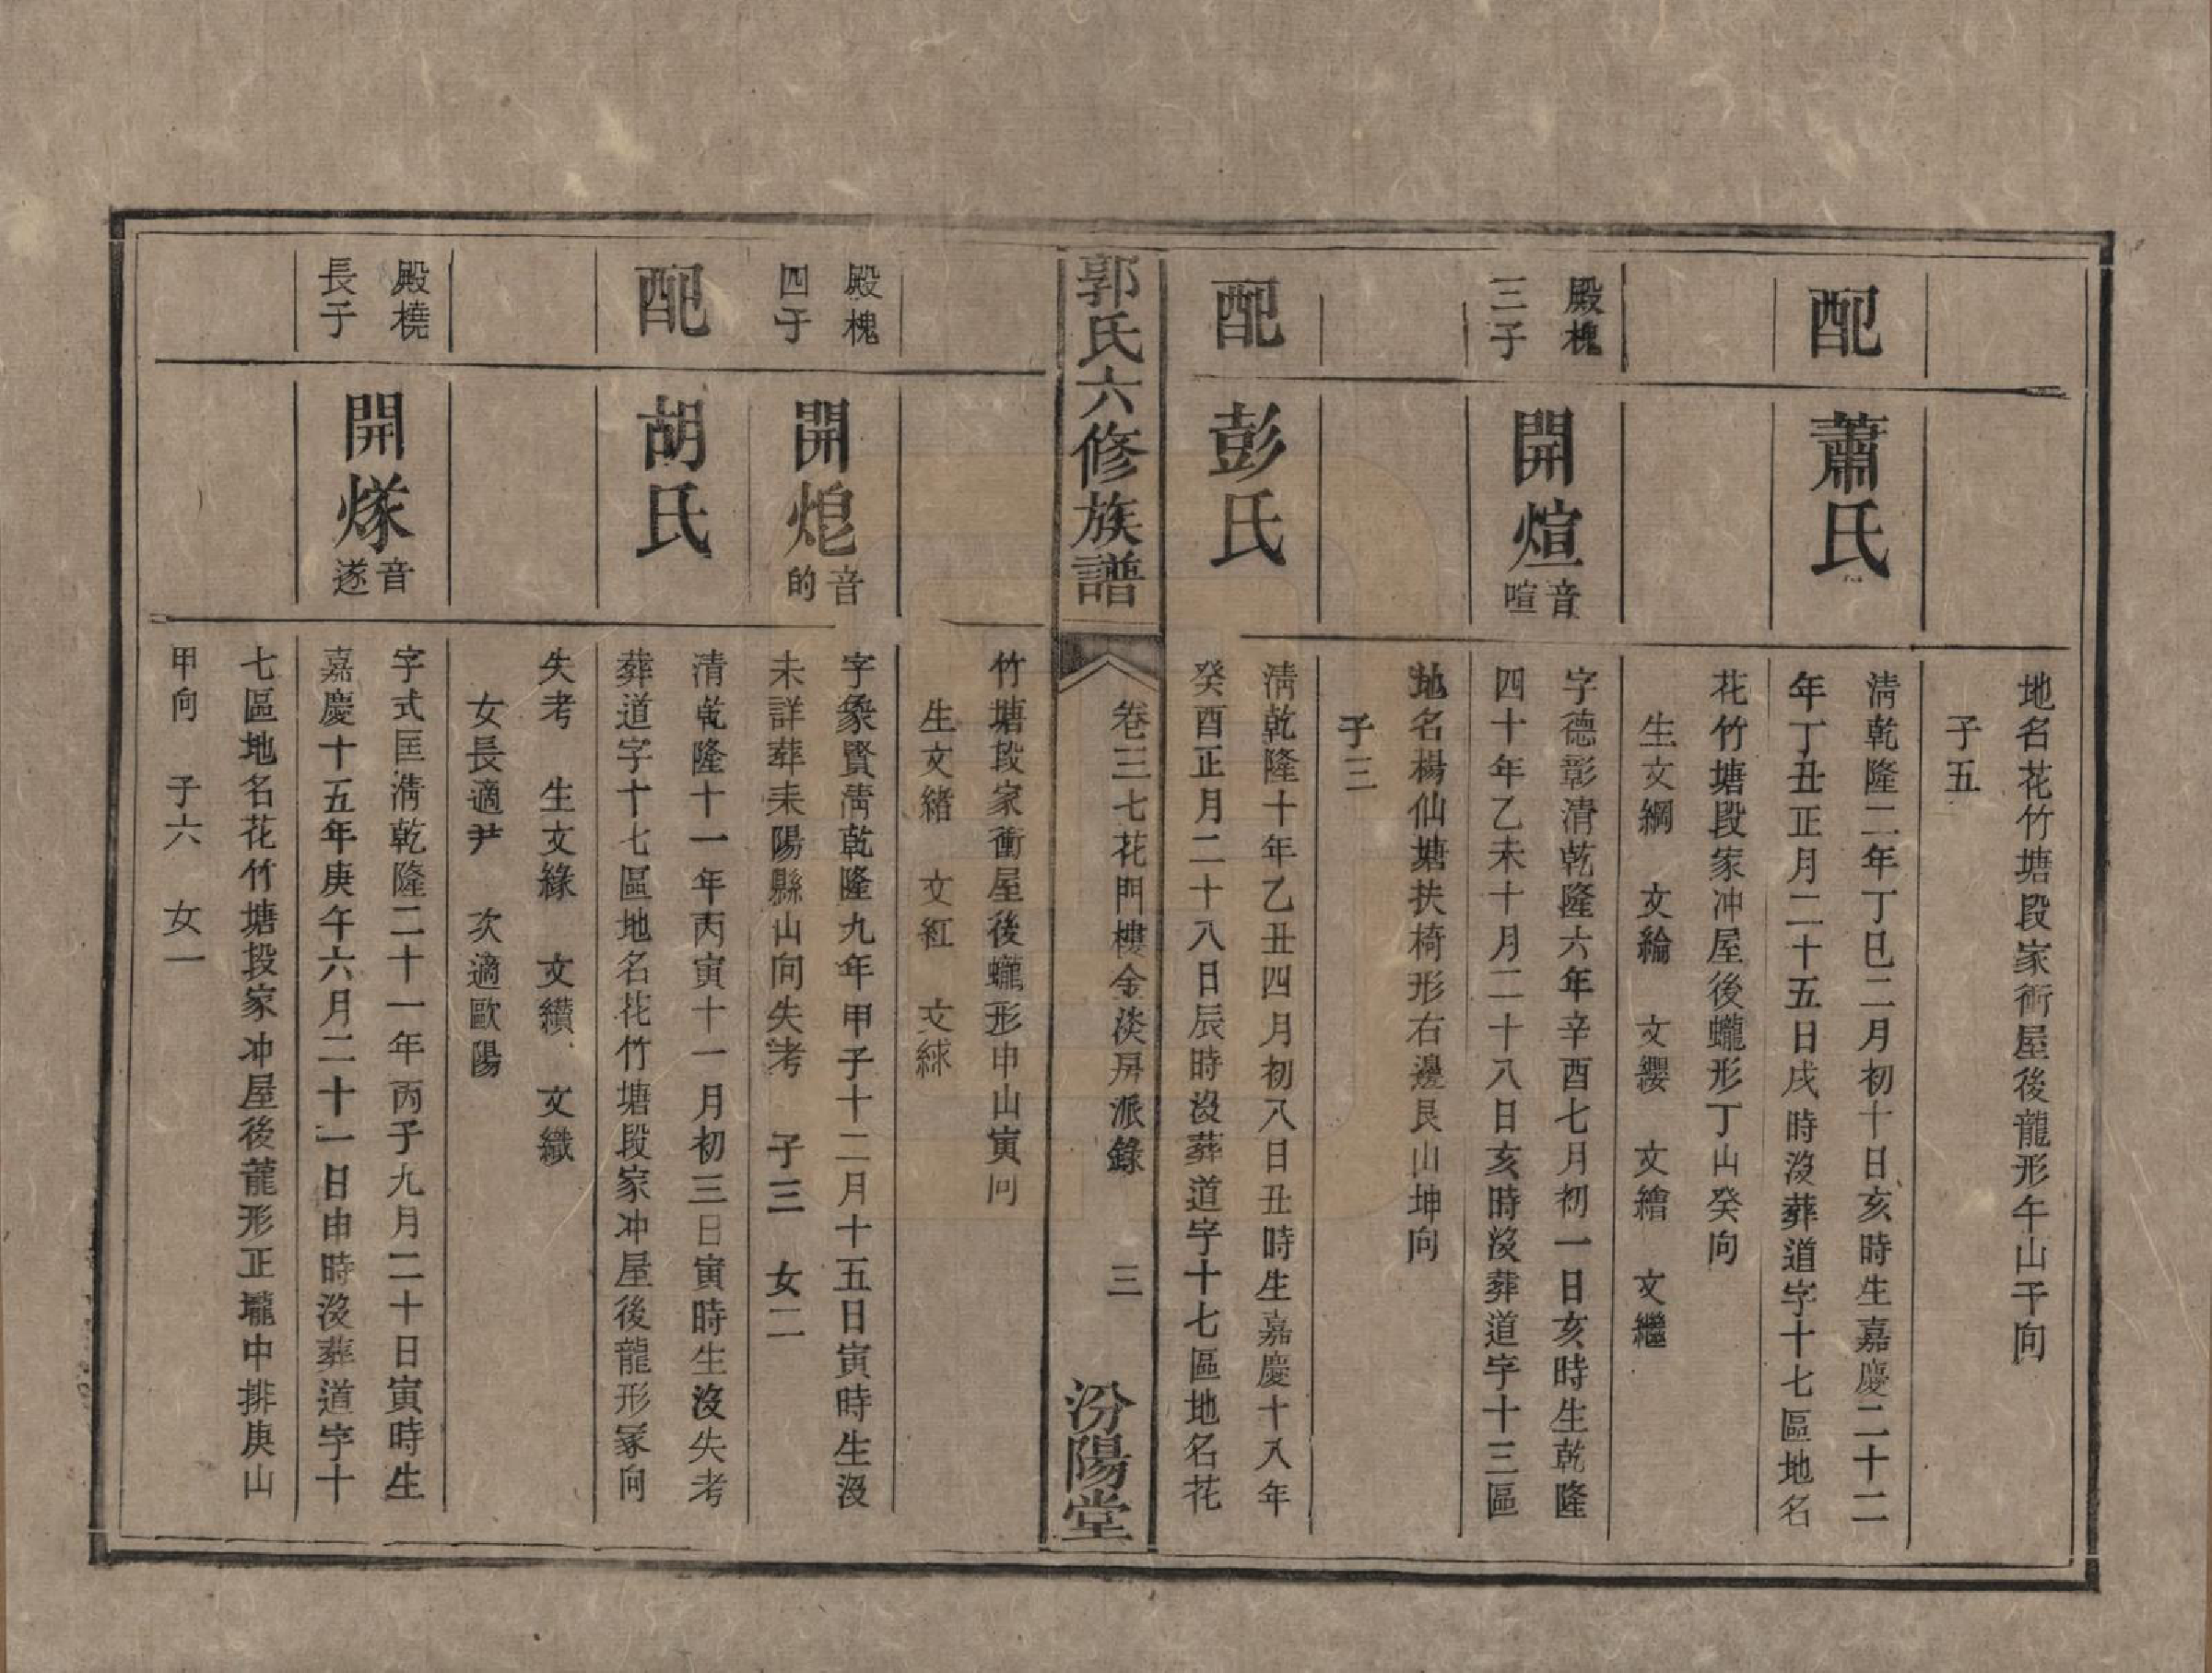 地名花竹塘段家衝屋後龍形午山子向
子五
配
蕭氏
淸乾隆二年丁巳二月初十日亥時生嘉慶二十二
年丁丑正月二十五日戌時沒葬道字十七區地名
花竹塘段家冲屋後蠬形丁山癸向
生文綱　文綸　文纓　文繪　文繼
殿槐
三子
開煊
音
喧
字德彰清乾隆六年辛酉七月初一日亥時生乾隆
四十年乙未十月二十八日亥時沒葬道字十三區
地名楊仙塘扶椅形右邊艮山坤向
子三
配
彭氏
淸乾隆十年乙丑四月初八日丑時生嘉慶十八年
癸酉正月二十八日辰時沒葬道字十七區地名花
郭氏六修族譜
卷三七花門樓金淡房派錄　三
汾陽堂
竹塘段家衝屋後蠬形申山寅向
生文緒　文紅　文絿
殿槐
四子
開炮
音
的
字象賢淸乾隆九年甲子十二月十五日寅時生沒
未詳葬耒陽縣山向失考　子三　女二
配
胡氏
清乾隆十一年丙寅十一月初三日寅時生沒失考
葬道字十七區地名花竹塘段家冲屋後龍形冢向
失考　生文緣　文纘　文織
女長適尹　次適歐陽
殿橈
長子
開燧
音
遂
字式匡淸乾隆二十一年丙子九月二十日寅時生
嘉慶十五年庚午六月二十一日申時沒葬道字十
七區地名花竹塘段家冲屋後蘢形正壠中排庚山
甲向　子六　女一